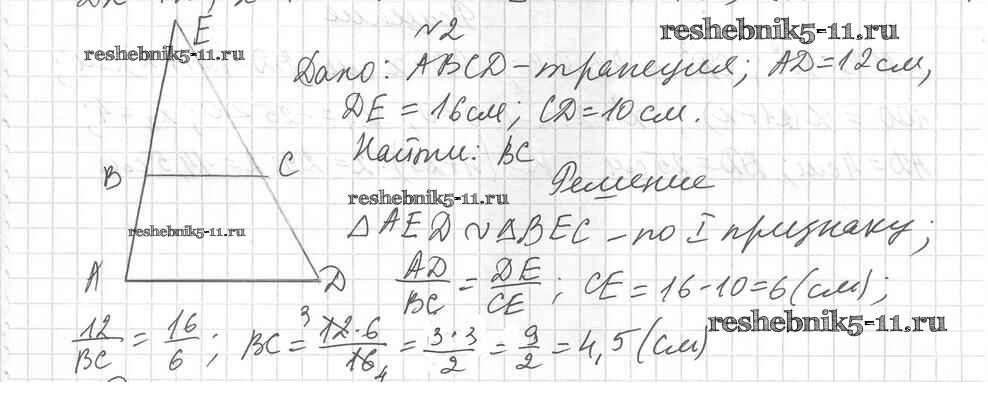 №2
reshebnik5-11.ru
E
reshebnik5-11.ru
Дано: ABCD – трапеция; AD = 12 см,
DE = 16 см; CD = 10 см.
Найти: BC
B
C
Решение
reshebnik5-11.ru
reshebnik5-11.ru
△AED ∼ △BEC – по I признаку;
A
D
AD/BC = DE/CE; CE = 16 - 10 = 6 (см);
reshebnik5-11.ru
12/BC = 16/6; BC = ³12·6/16₄ = 3·3/2 = 9/2 = 4,5 (см)